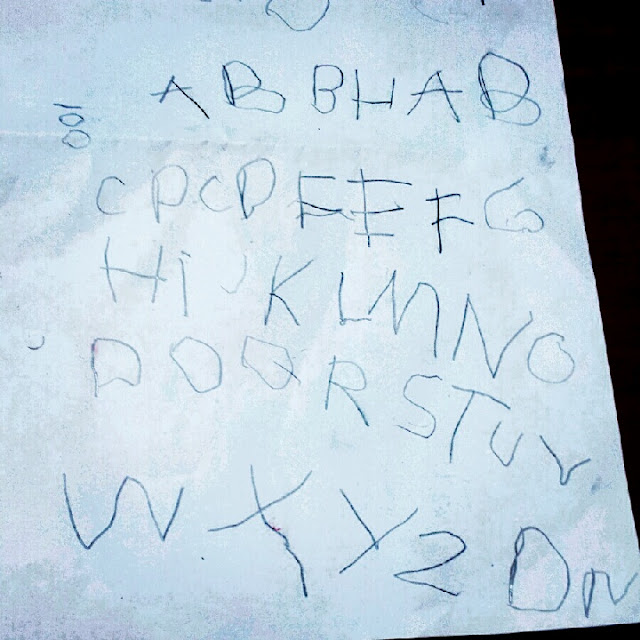 A B B H A B
100
C D C D E E F G
H i J K L M N O
P O Q R S T U V
W X Y Z D n